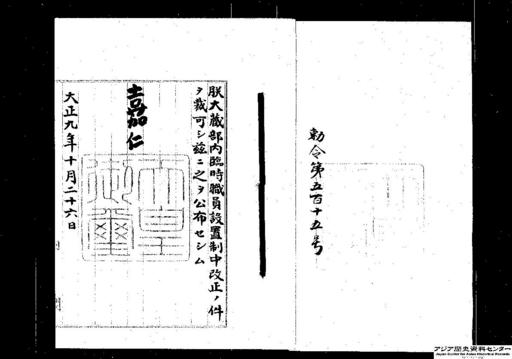 勅令第五百十五号
朕大蔵部内臨時職員設置制中改正ノ件
ヲ裁可シ茲ニ之ヲ公布セシム
嘉仁
天皇
御璽
大正九年十月二十六日
アジア歴史資料センター
Japan Center for Asian Historical Records